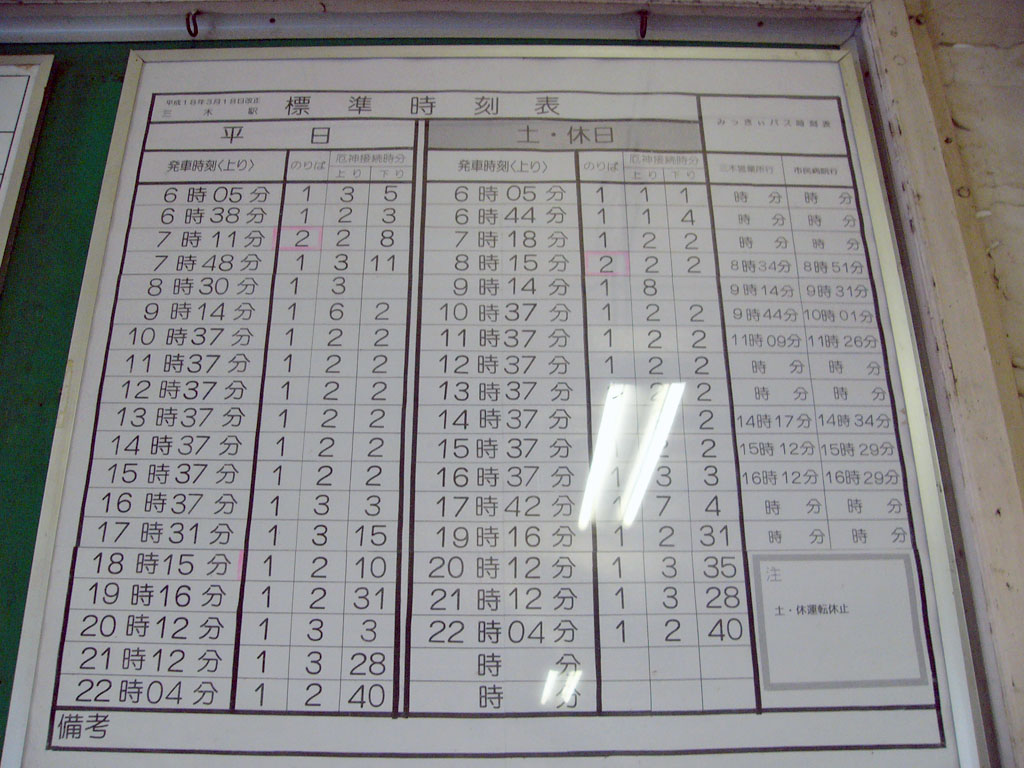 平成18年3月18日改正
三木駅 標準時刻表
平日 土・休日 みっきぃバス時刻表
発車時刻〈上り〉 のりば 厄神接続時分 上り 下り 発車時刻〈上り〉 のりば 厄神接続時分 上り 下り 三木営業所行 市民病院行
6時05分 1 3 5 6時05分 1 1 1 時 分 時 分
6時38分 1 2 3 6時44分 1 1 4 時 分 時 分
7時11分 2 2 8 7時18分 1 2 2 時 分 時 分
7時48分 1 3 11 8時15分 2 2 2 8時34分 8時51分
8時30分 1 3 9時14分 1 8 9時14分 9時31分
9時14分 1 6 2 10時37分 1 2 2 9時44分 10時01分
10時37分 1 2 2 11時37分 1 2 2 11時09分 11時26分
11時37分 1 2 2 12時37分 1 2 2 時 分 時 分
12時37分 1 2 2 13時37分 2 2 時 分 時 分
13時37分 1 2 2 14時37分 2 14時17分 14時34分
14時37分 1 2 2 15時37分 2 2 15時12分 15時29分
15時37分 1 2 2 16時37分 1 3 3 16時12分 16時29分
16時37分 1 3 3 17時42分 1 7 4 時 分 時 分
17時31分 1 3 15 19時16分 1 2 31 時 分 時 分
18時15分 1 2 10 20時12分 1 3 35 注
19時16分 1 2 31 21時12分 1 3 28 土・休運転休止
20時12分 1 3 3 22時04分 1 2 40
21時12分 1 3 28 時 分
22時04分 1 2 40 時 分
備考